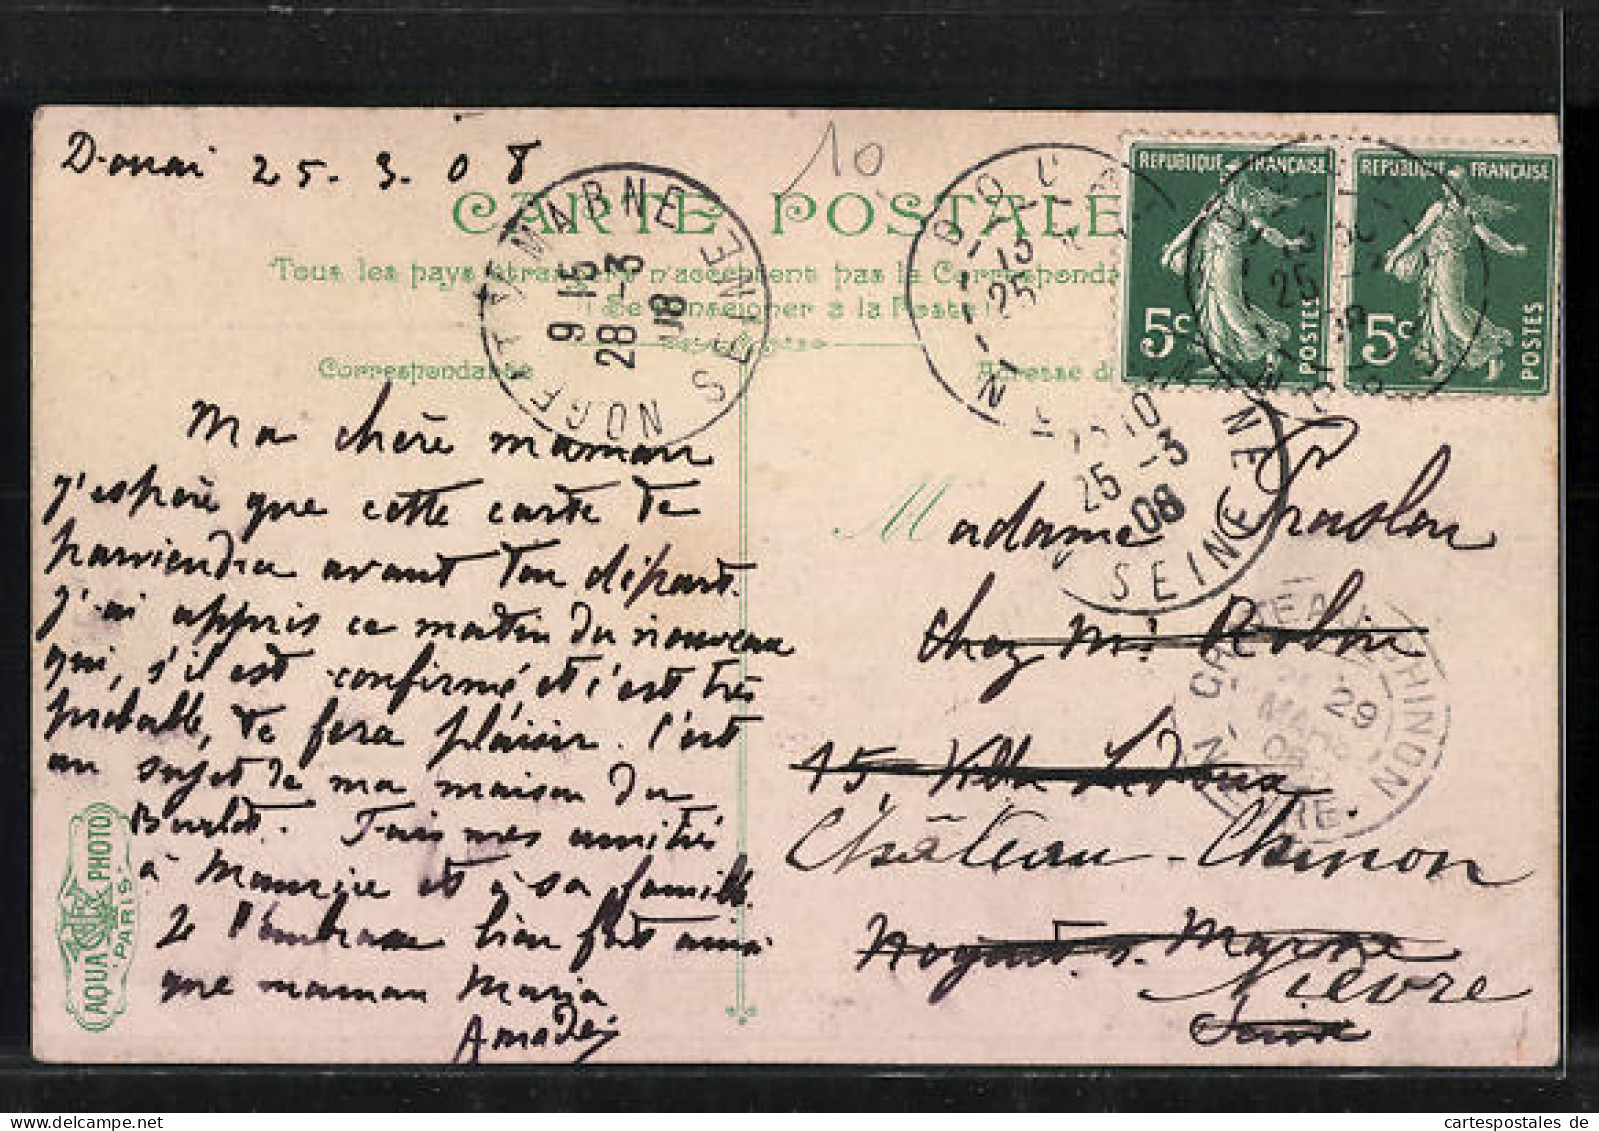 Douai 25. 3. 08
10
CARTE POSTALE
Tous les pays étrangers n'acceptent pas la Correspondance
(Se renseigner à la Poste)
Correspondance
Adresse
REPUBLIQUE FRANÇAISE
5c POSTES
REPUBLIQUE FRANÇAISE
5c POSTES
NOGENT S/MARNE SEINE
9 15
28 -3
08
DOUAI NORD
13
25 -3
25 -3
08
SEINE
CHATEAU-CHINON
NIEVRE
29
MARS
08
Ma chère maman
j'espère que cette carte te
parviendra avant ton départ.
J'ai appris ce matin du nouveau
qui, s'il est confirmé et c'est très
probable, te fera plaisir. C'est
au sujet de ma maison du
Fais mes amitiés
à Maurice et à sa famille.
Je t'embrasse bien fort ainsi
que maman Maria
Amadei
Madame Praslon
chez Mr Robin
15, Villa Ledoux
Château-Chinon
Nogent s. Marne
Nièvre
Seine
AQUA PHOTO
PARIS
cartespostales.de